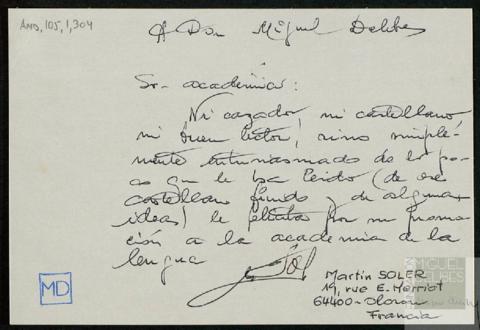 AMD, 105, 1, 304
A Don Miguel Delibes
Sr. académico:
Ni cazador, ni castellano,
ni buen lector, sino simple-
mente entusiasmado de lo po-
co que le ha leido (de ese
castellano fluido y de algunas
ideas) le felicita por su promo-
ción a la academia de la
lengua
Martin SOLER
19, rue E. Herriot
64400 - Oloron
Francia
MD
MIGUEL
DELIBES